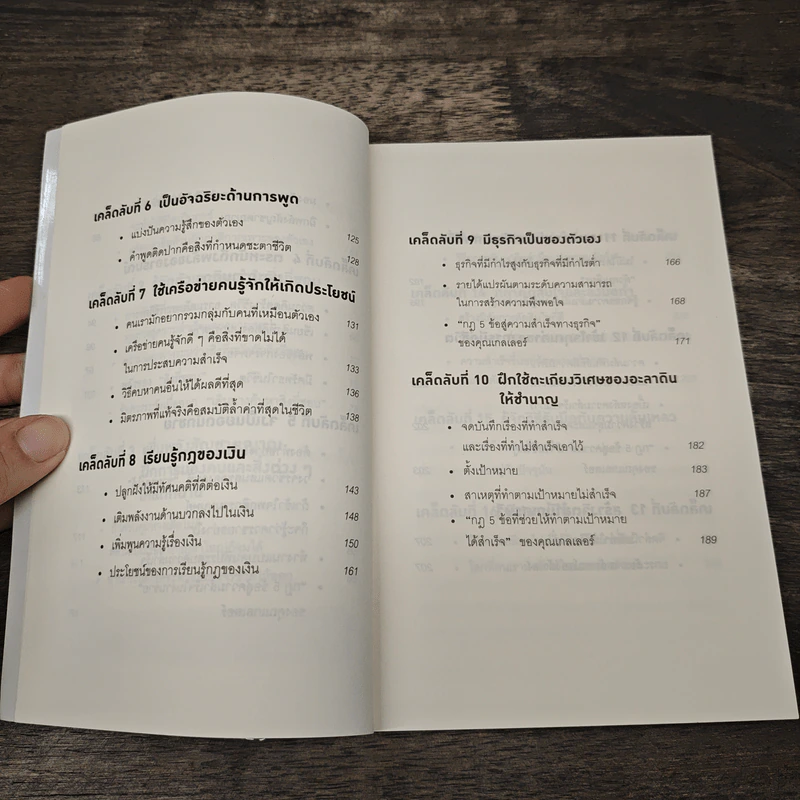 เคล็ดลับที่ 6 เป็นอัจฉริยะด้านการพูด
• แบ่งปันความรู้สึกของตัวเอง 125
• คำพูดติดปากคือสิ่งที่กำหนดชะตาชีวิต 128
เคล็ดลับที่ 7 ใช้เครือข่ายคนรู้จักให้เกิดประโยชน์
• คนเรามักอยากรวมกลุ่มกับคนที่เหมือนตัวเอง 131
• เครือข่ายคนรู้จักดี ๆ คือสิ่งที่ขาดไม่ได้
ในการประสบความสำเร็จ 133
• วิธีคบหาคนอื่นให้ได้ผลดีที่สุด 136
• มิตรภาพที่แท้จริงคือสมบัติล้ำค่าที่สุดในชีวิต 138
เคล็ดลับที่ 8 เรียนรู้กฎของเงิน
• ปลูกฝังให้มีทัศนคติที่ดีต่อเงิน 143
• เติมพลังงานด้านบวกลงไปในเงิน 148
• เพิ่มพูนความรู้เรื่องเงิน 150
• ประโยชน์ของการเรียนรู้กฎของเงิน 161
เคล็ดลับที่ 9 มีธุรกิจเป็นของตัวเอง
• ธุรกิจที่มีกำไรสูงกับธุรกิจที่มีกำไรต่ำ 166
• รายได้แปรผันตามระดับความสามารถ
ในการสร้างความพึงพอใจ 168
• “กฎ 5 ข้อสู่ความสำเร็จทางธุรกิจ”
ของคุณเกลเลอร์ 171
เคล็ดลับที่ 10 ฝึกใช้ตะเกียงวิเศษของอะลาดิน
ให้ชำนาญ
• จดบันทึกเรื่องที่ทำสำเร็จ
และเรื่องที่ทำไม่สำเร็จเอาไว้ 182
• ตั้งเป้าหมาย 183
• สาเหตุที่ทำตามเป้าหมายไม่สำเร็จ 187
• “กฎ 5 ข้อที่ช่วยให้ทำตามเป้าหมาย
ได้สำเร็จ” ของคุณเกลเลอร์ 189